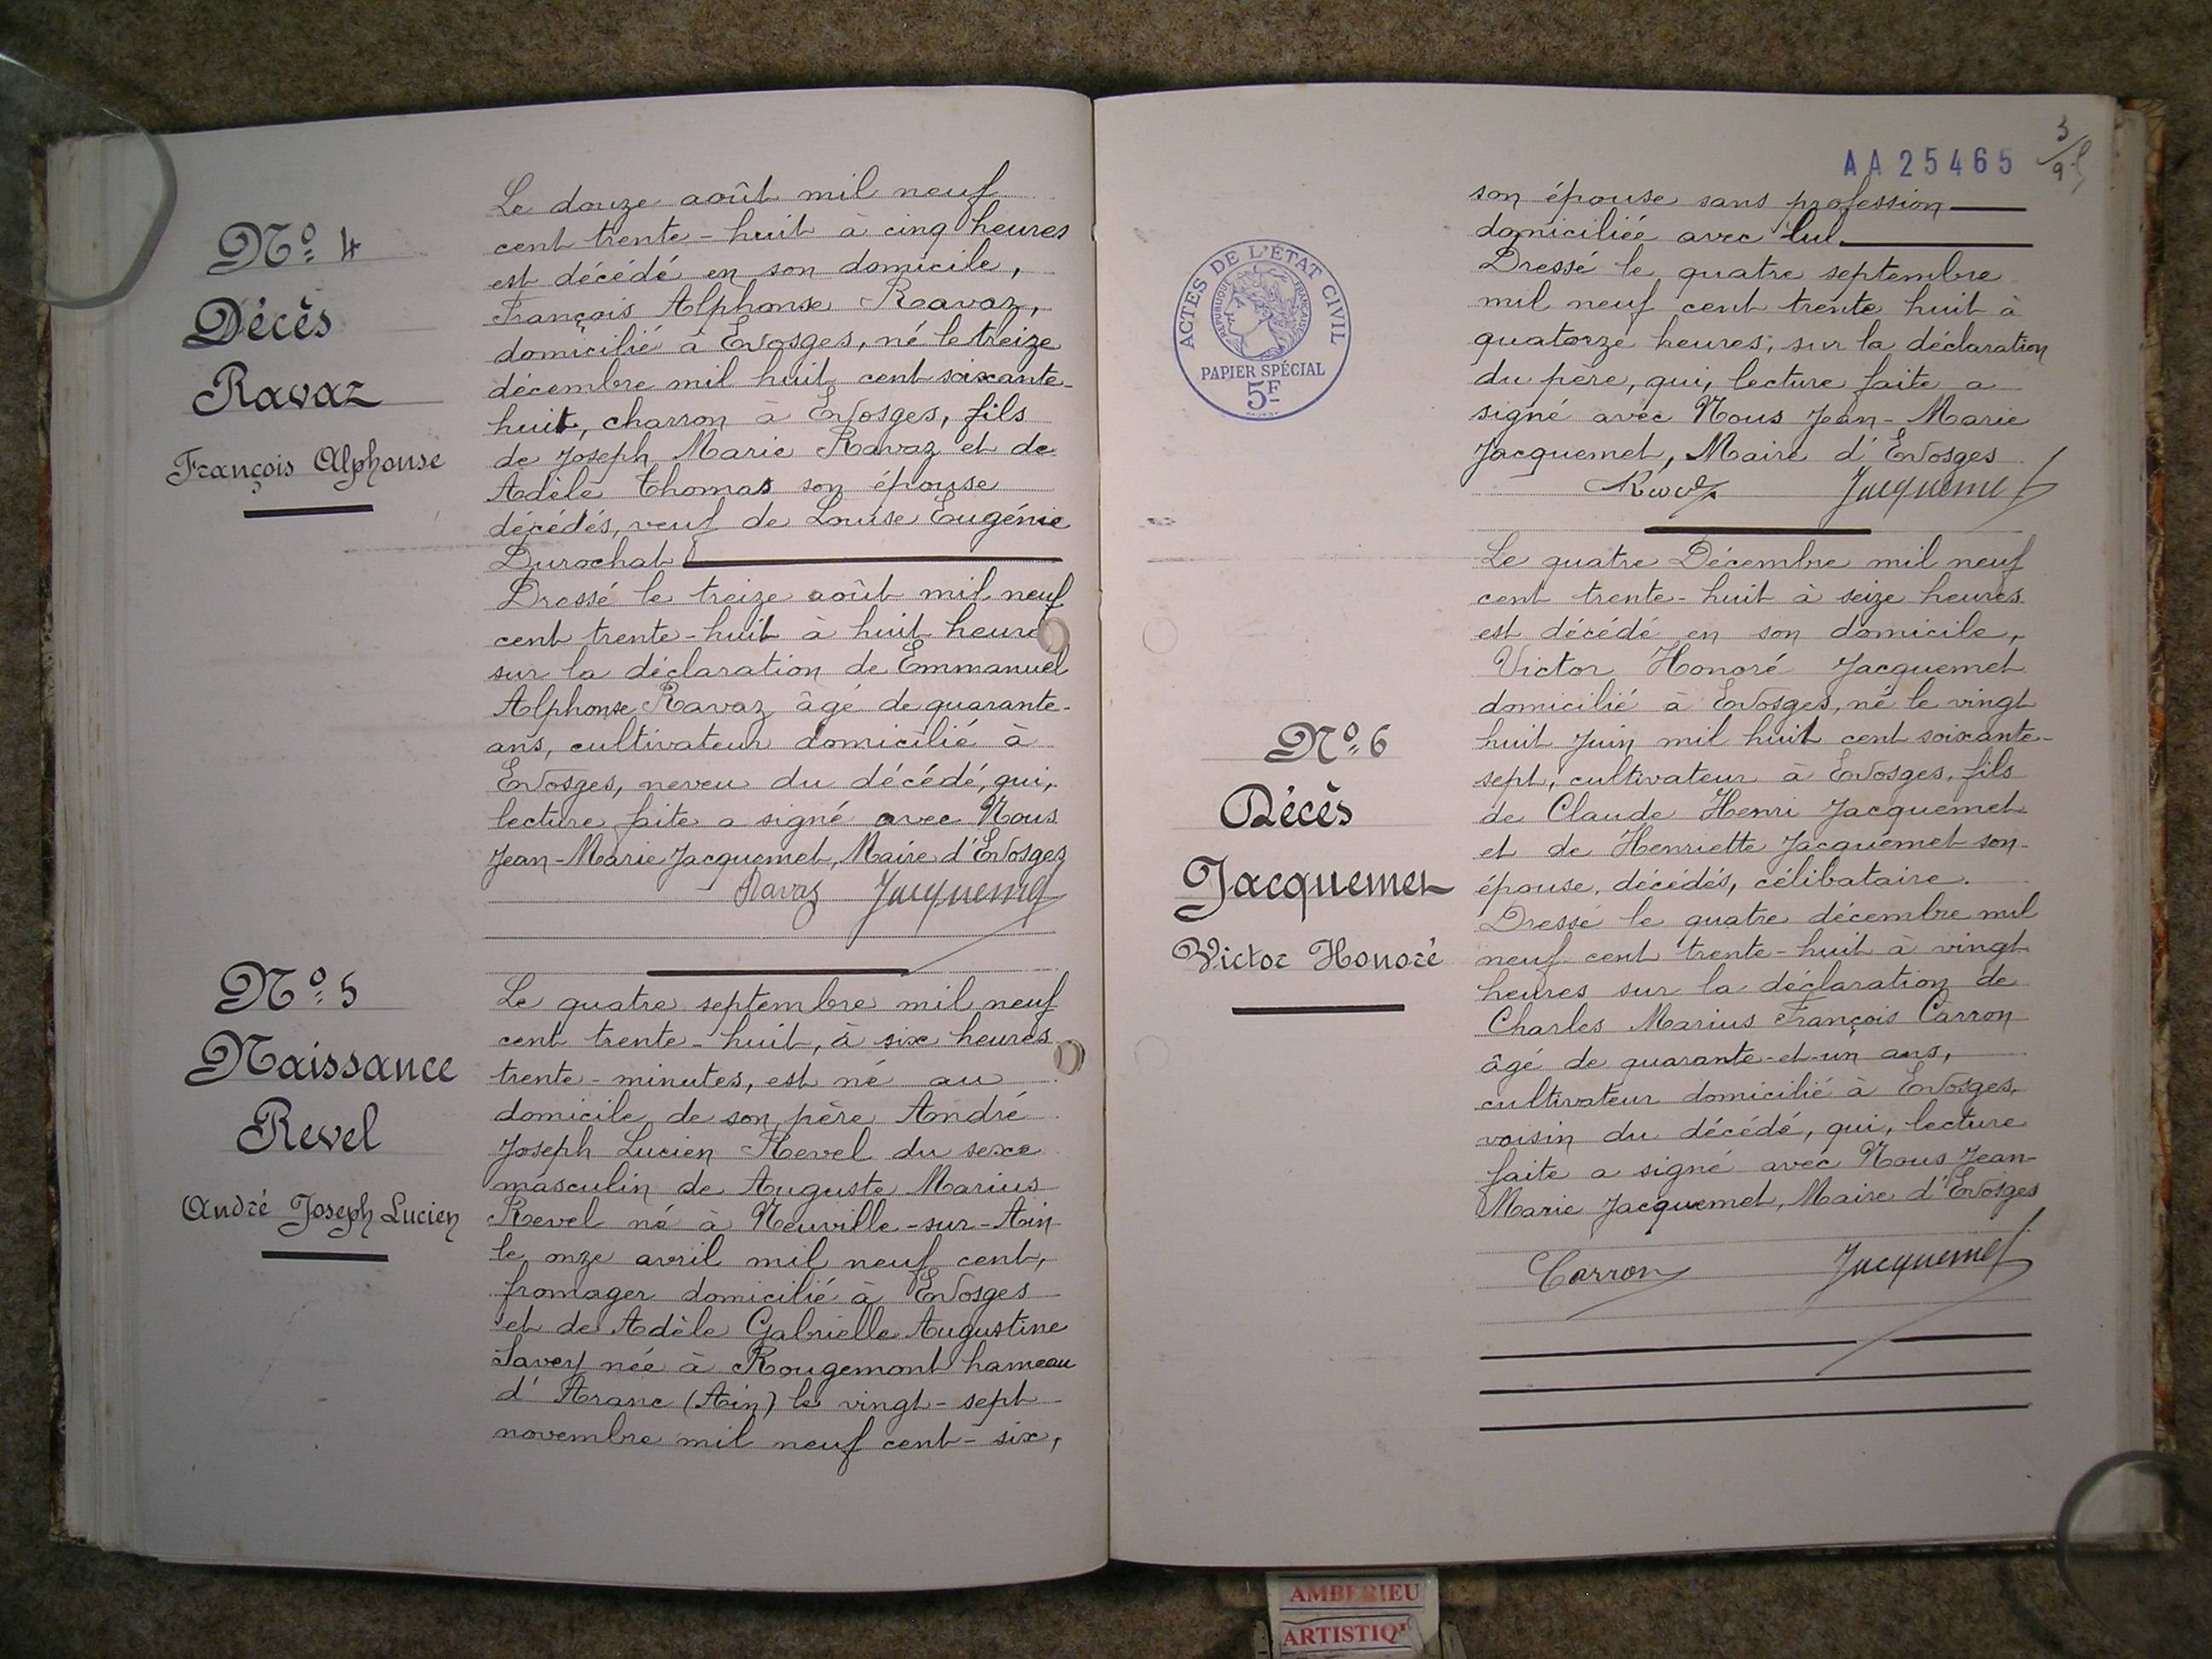 N° 4
Décès
Ravaz
François Alphonse
Le douze août mil neuf
cent trente-huit à cinq heures
est décédé en son domicile,
François Alphonse Ravaz,
domicilié à Evosges, né le treize
décembre mil huit cent soixante-
huit, charron à Evosges, fils
de Joseph Marie Ravaz et de
Adèle Thomas son épouse
décédés, veuf de Louise Eugénie
Durochat
Dressé le treize août mil neuf
cent trente-huit à huit heures
sur la déclaration de Emmanuel
Alphonse Ravaz âgé de quarante-
ans, cultivateur domicilié à
Evosges, neveu du décédé, qui,
lecture faite a signé avec Nous
Jean-Marie Jacquemet, Maire d'Evosges
Ravaz Jacquemet
N° 5
Naissance
Revel
André Joseph Lucien
Le quatre septembre mil neuf
cent trente-huit, à six heures
trente-minutes, est né au
domicile de son père André
Joseph Lucien Revel du sexe
masculin de Auguste Marius
Revel né à Neuville-sur-Ain
le onze avril mil neuf cent,
fromager domicilié à Evosges
et de Adèle Gabrielle Augustine
Savey née à Rougemont hameau
d'Aranc (Ain) le vingt-sept
novembre mil neuf cent-six,
AA 25465
3/9
ACTES DE L'ÉTAT CIVIL
RÉPUBLIQUE FRANÇAISE
PAPIER SPÉCIAL
5F
son épouse sans profession
domiciliée avec lui
Dressé le quatre septembre
mil neuf cent trente huit à
quatorze heures, sur la déclaration
du père, qui, lecture faite a
signé avec Nous Jean-Marie
Jacquemet, Maire d'Evosges
Revel Jacquemet
N° 6
Décès
Jacquemet
Victor Honoré
Le quatre Décembre mil neuf
cent trente-huit à seize heures
est décédé en son domicile,
Victor Honoré Jacquemet
domicilié à Evosges, né le vingt
huit Juin mil huit cent soixante-
sept, cultivateur à Evosges, fils
de Claude Henri Jacquemet
et de Henriette Jacquemet son
épouse, décédés, célibataire.
Dressé le quatre décembre mil
neuf cent trente-huit à vingt
heures sur la déclaration de
Charles Marius François Carron
âgé de quarante-et-un ans,
cultivateur domicilié à Evosges,
voisin du décédé, qui, lecture
faite a signé avec Nous Jean-
Marie Jacquemet, Maire d'Evosges
Carron Jacquemet
AMBERIEU
ARTISTIQ